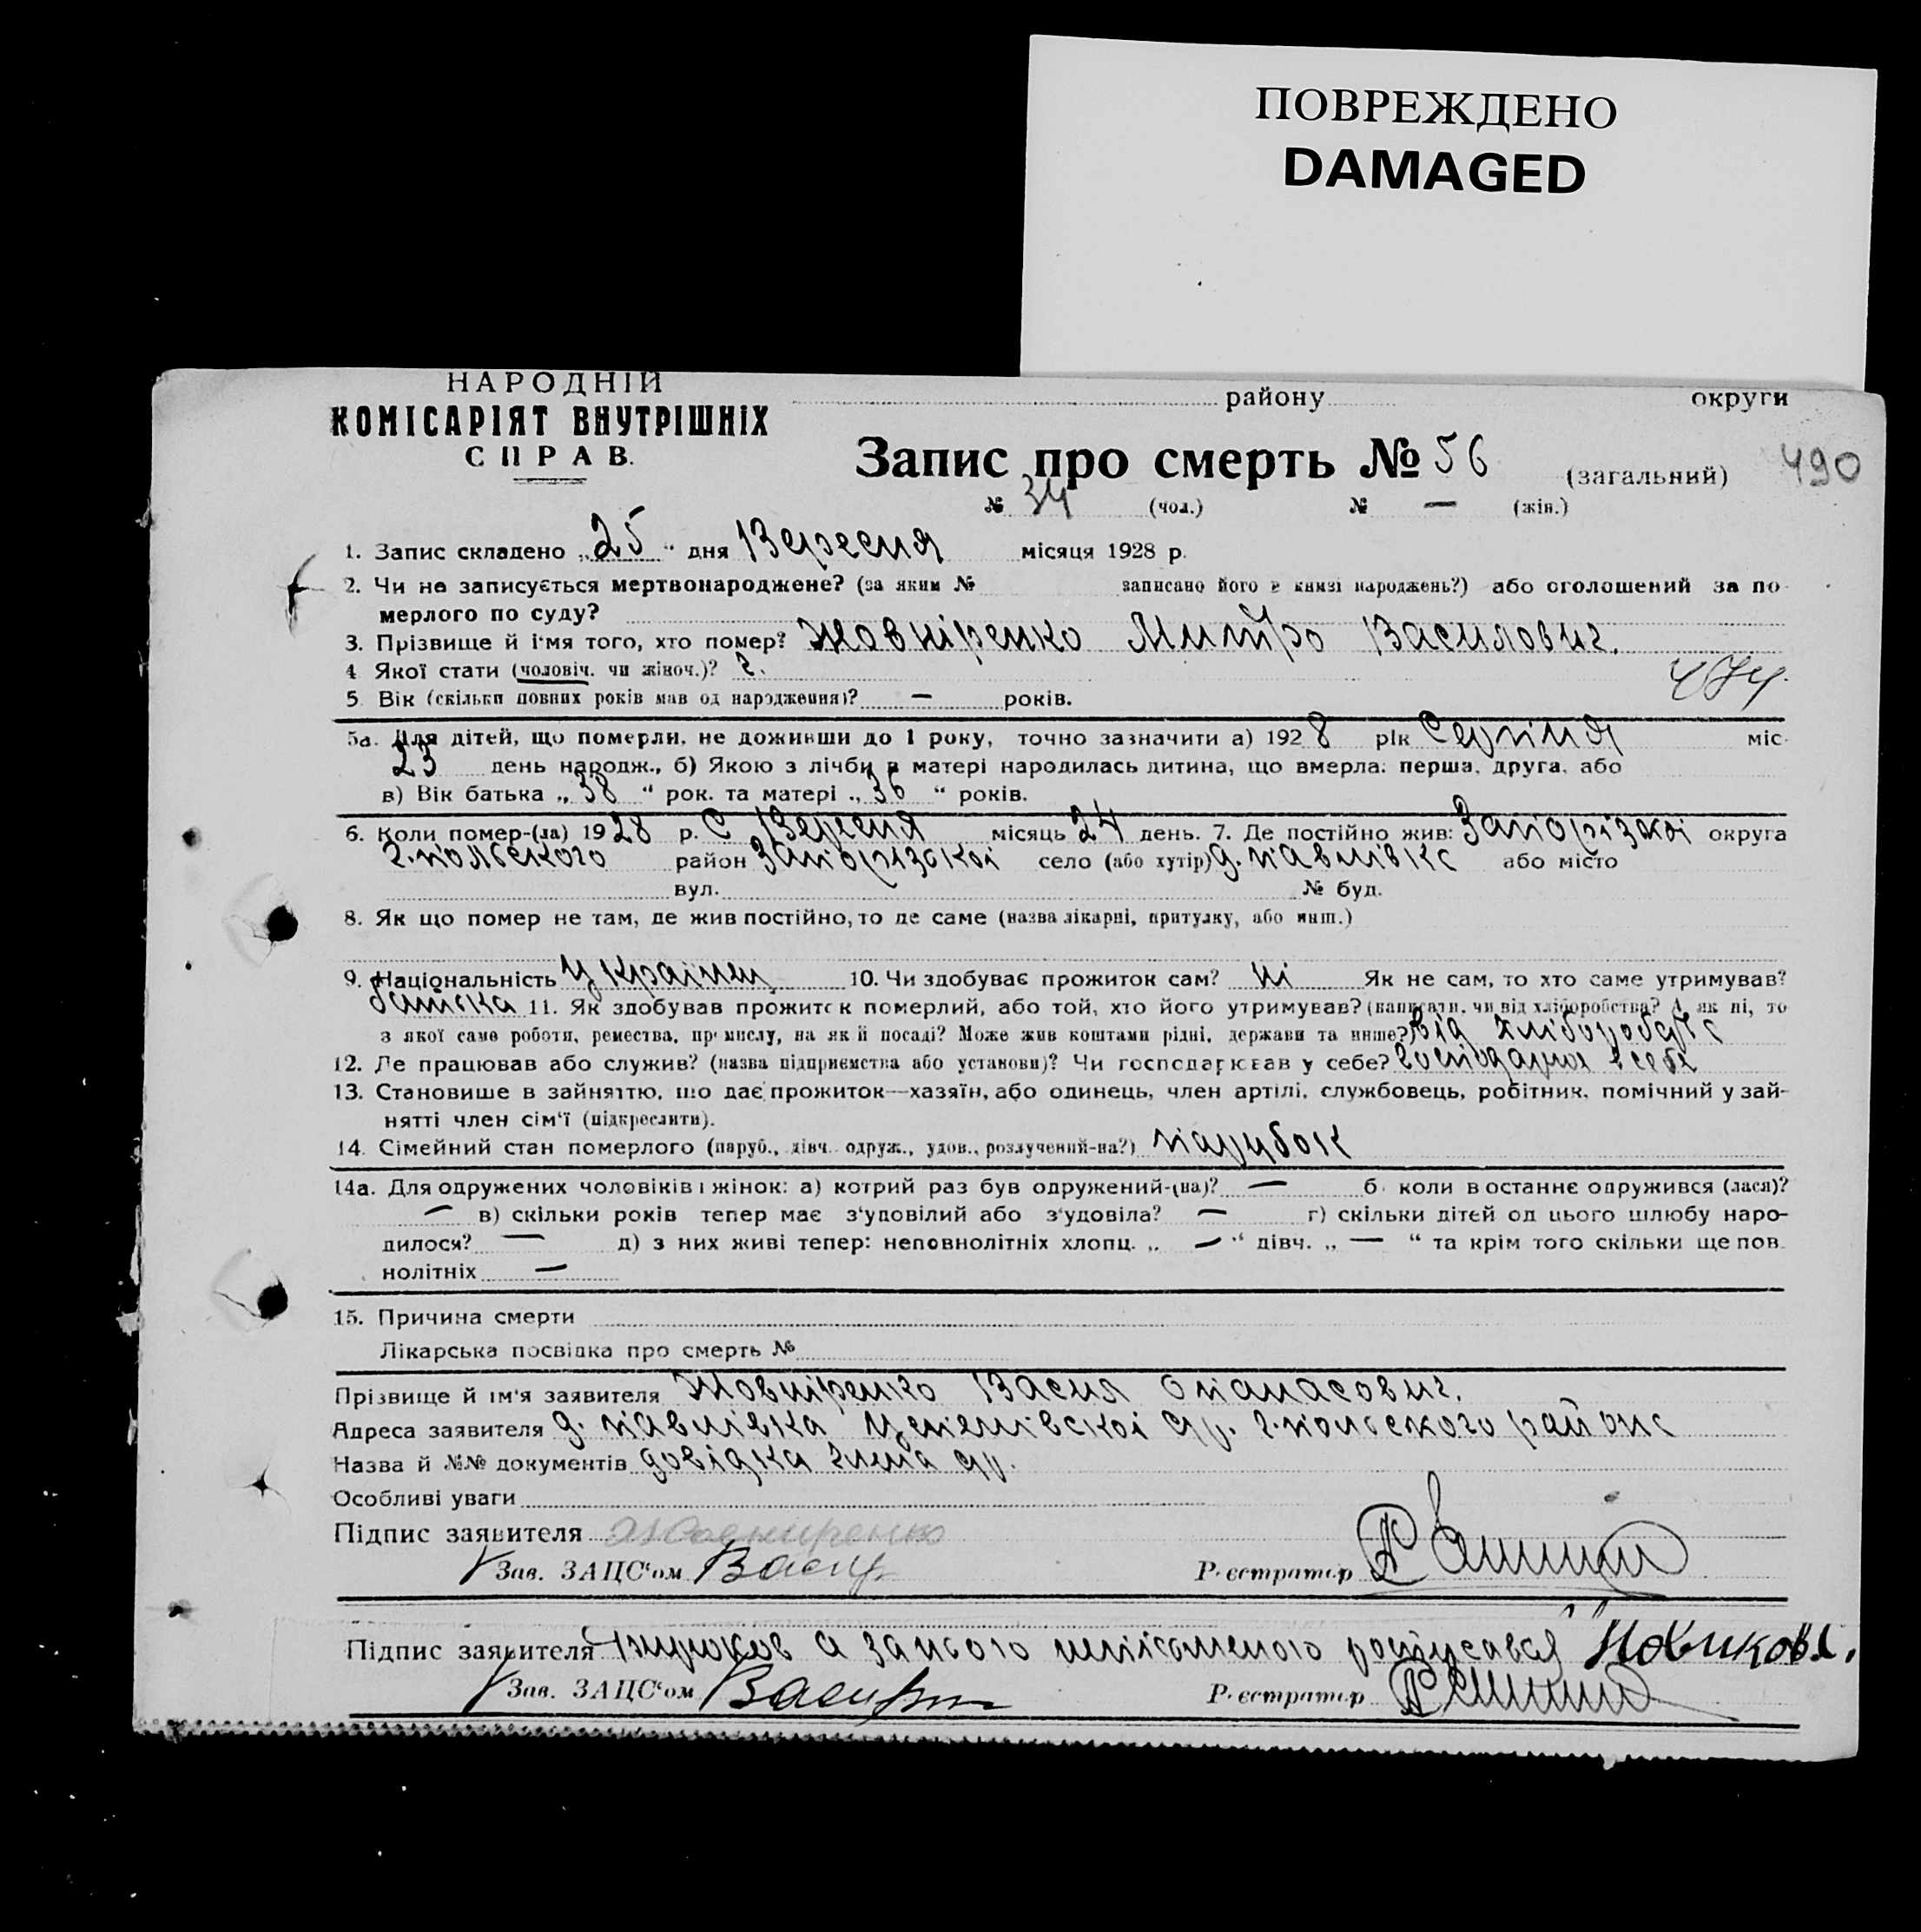 ПОВРЕЖДЕНО
DAMAGED
НАРОДНІЙ
КОМІСАРІЯТ ВНУТРІШНІХ
СПРАВ.
району округи
Запис про смерть № 56 (загальний) 490
№ 34 (чол.) № — (жін.)
1. Запис складено „25“ дня Вересня місяця 1928 р.
2. Чи не записується мертвонароджене? (за яким № записано його в книзі народжень?) або оголошений за по-
мерлого по суду?
3. Прізвище й ім'я того, хто помер? Жовніренко Митро Василович.
4 Якої стати (чоловіч. чи жіноч.)? ч.
5 Вік (скільки повних років мав од народження)? — років.
5а. Для дітей, що померли, не доживши до 1 року, точно зазначити а) 1928 рік Серпня міс.
23 день народж., б) Якою з лічби в матері народилась дитина, що вмерла: перша, друга, або
в) Вік батька „38“ рок. та матері „36“ років.
6. Коли помер-(ла) 1928 р. Вересня місяць 24 день. 7. Де постійно жив: Запорізькоі округа
г.польского район Запорізскоі село (або хутір) д. павлівкс або місто
вул. № буд.
8. Як що помер не там, де жив постійно, то де саме (назва лікарні, притулку, або инш.)
9. Національність Українец 10. Чи здобуває прожиток сам? ні Як не сам, то хто саме утримував?
батька 11. Як здобував прожиток померлий, або той, хто його утримував? (написати, чи від хліборобства? А як ні, то
з якої саме роботи, ремества, промислу, на якій посаді? Може жив коштами рідні, держави та инше?) від хліборобстс
12. Де працював або служив? (назва підприємства або установи)? Чи господарював у себе? в себе
13. Становище в зайняттю, що дає прожиток—хазяїн, або одинець, член артілі, службовець, робітник, помічний у зай-
нятті член сім'ї (підкреслити).
14. Сімейний стан померлого (паруб., дівч. одруж., удов., розлучений-на?) парубок
14а. Для одружених чоловіків і жінок: а) котрий раз був одружений-(на)? — б) коли востаннє одружився (лася)?
— в) скільки років тепер має з'удовілий або з'удовіла? — г) скільки дітей од цього шлюбу наро-
дилося? — д) з них живі тепер: неповнолітніх хлопц. „—“ дівч. „—“ та крім того скільки ще пов-
нолітніх —
15. Причина смерти
Лікарська посвідка про смерть №
Прізвище й ім'я заявителя Жовніренко Васил Опанасович.
Адреса заявителя д. павлівка г.польского району
Назва й №№ документів довідка
Особливі уваги
Підпис заявителя Жовниренко
Зав. ЗАЦС'ом Реєстратор
Підпис заявителя а за
Зав. ЗАЦС'ом Реєстратор